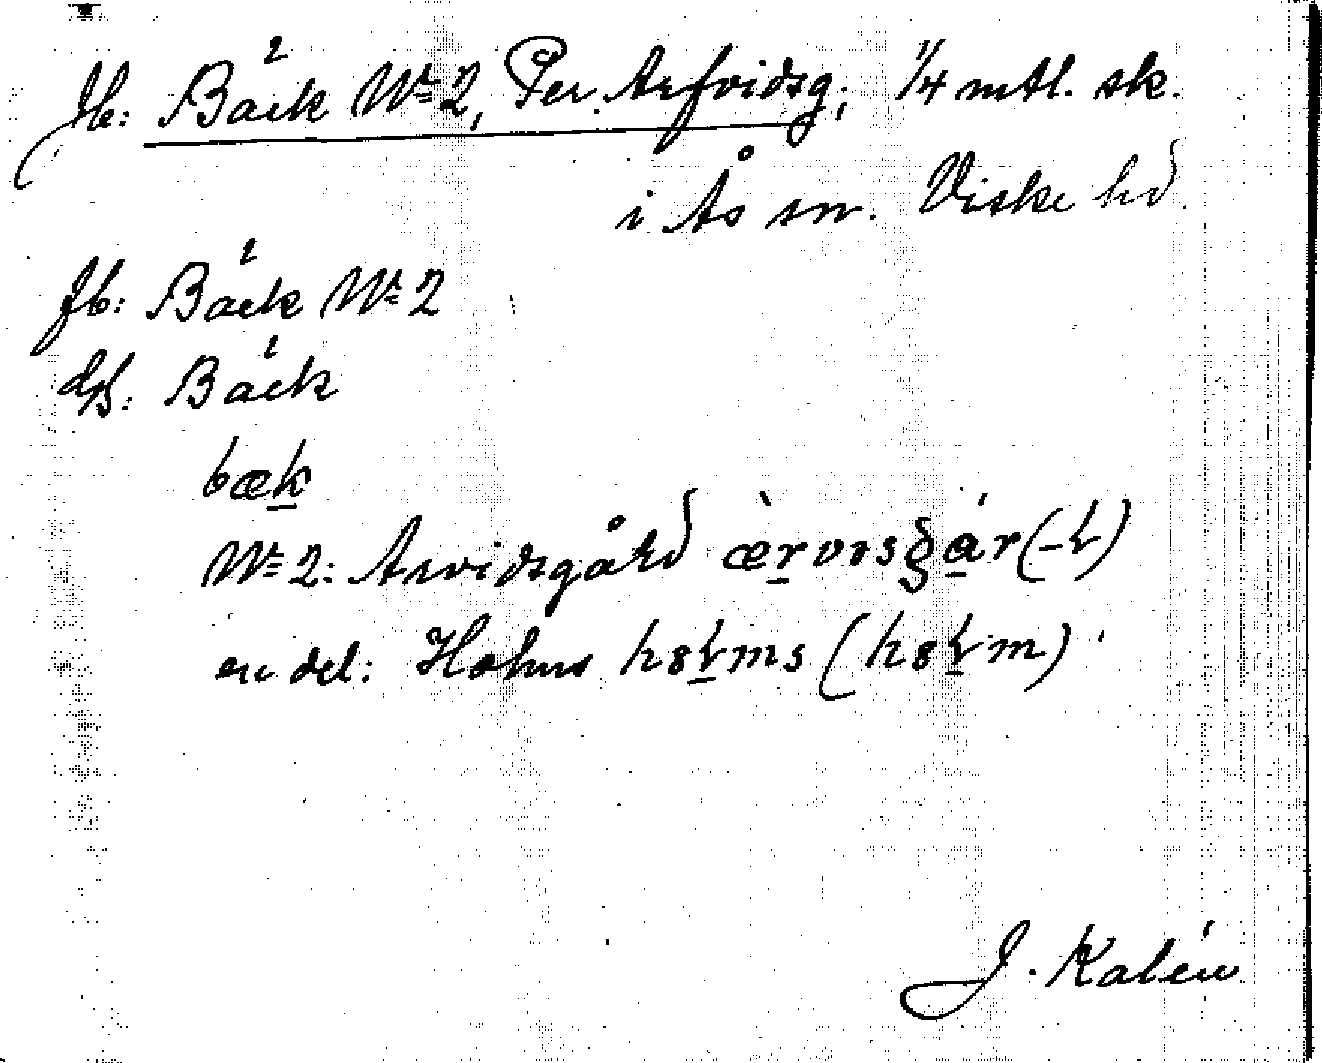 Jb: Bäck No 2, Per Arfvidsg; 1/4 mtl. sk.
i Ås sn. Viske hd.
Jb: Bäck No 2
ds: Bäck
bæk
No 2: Arvidsgård
en del: Holms
J. Kalén